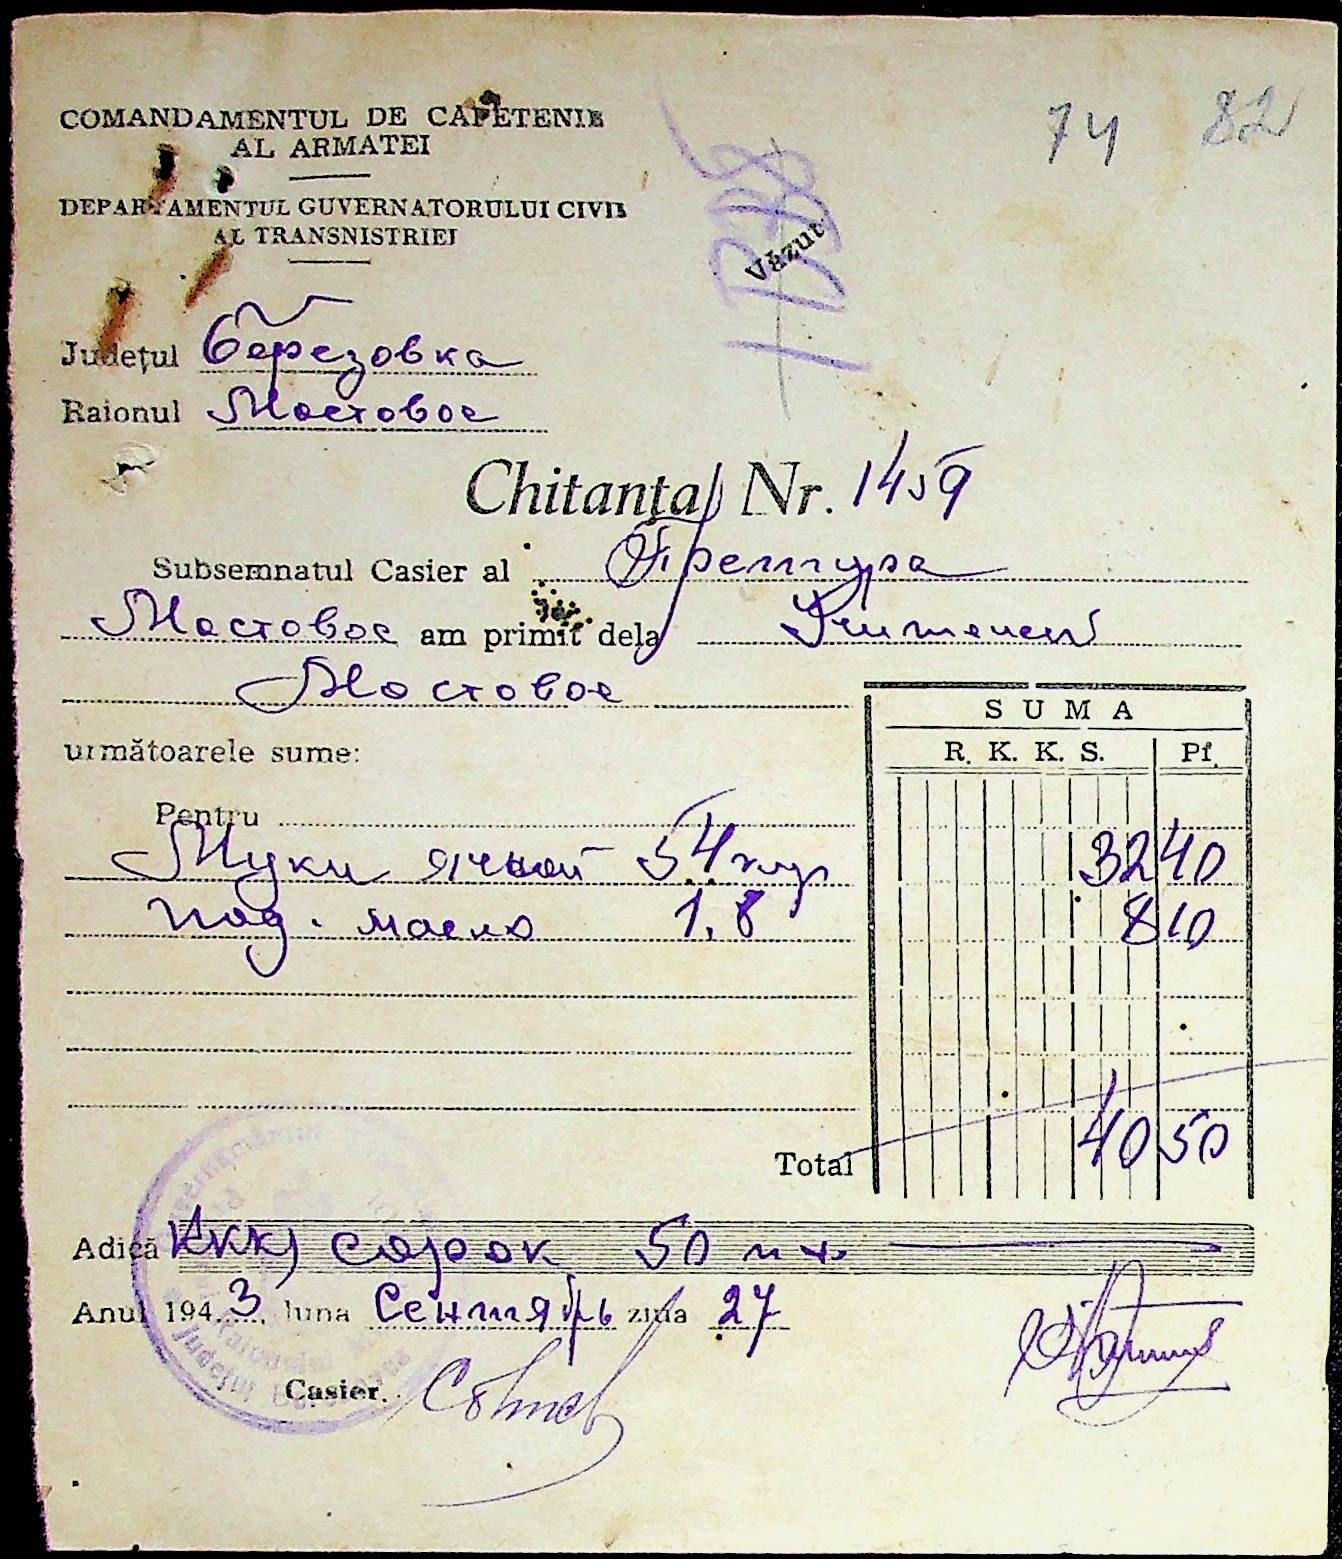 74 82
COMANDAMENTUL DE CAPETENIE
AL ARMATEI
DEPARTAMENTUL GUVERNATORULUI CIVIL
AL TRANSNISTRIEI
Văzut
Județul Березовка
Raionul Мостовое
Chitanța Nr. 1459
Subsemnatul Casier al Претура
Мостовое am primit dela
Мостовое
SUMA
următoarele sume:
R. K. K. S. Pf.
Pentru
Муки ячной 54 кгр 32 40
под. масло 1,8 8 10
Total 40 50
Adică ККК) сорок 50 пф.
Anul 1943 luna Сентябрь ziua 27
Casier.
Județul